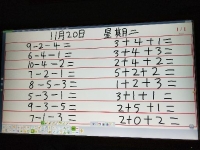 11月20日 星期二
9-2-4= 3+4+1=
6-4-1= 3+4+3=
10-4-2= 2+4+2=
7-2-1= 5+2+2=
8-5-3= 1+2+3=
5-3-1= 3+1+1=
9-3-5= 2+5+1=
7-1-3= 2+0+2=